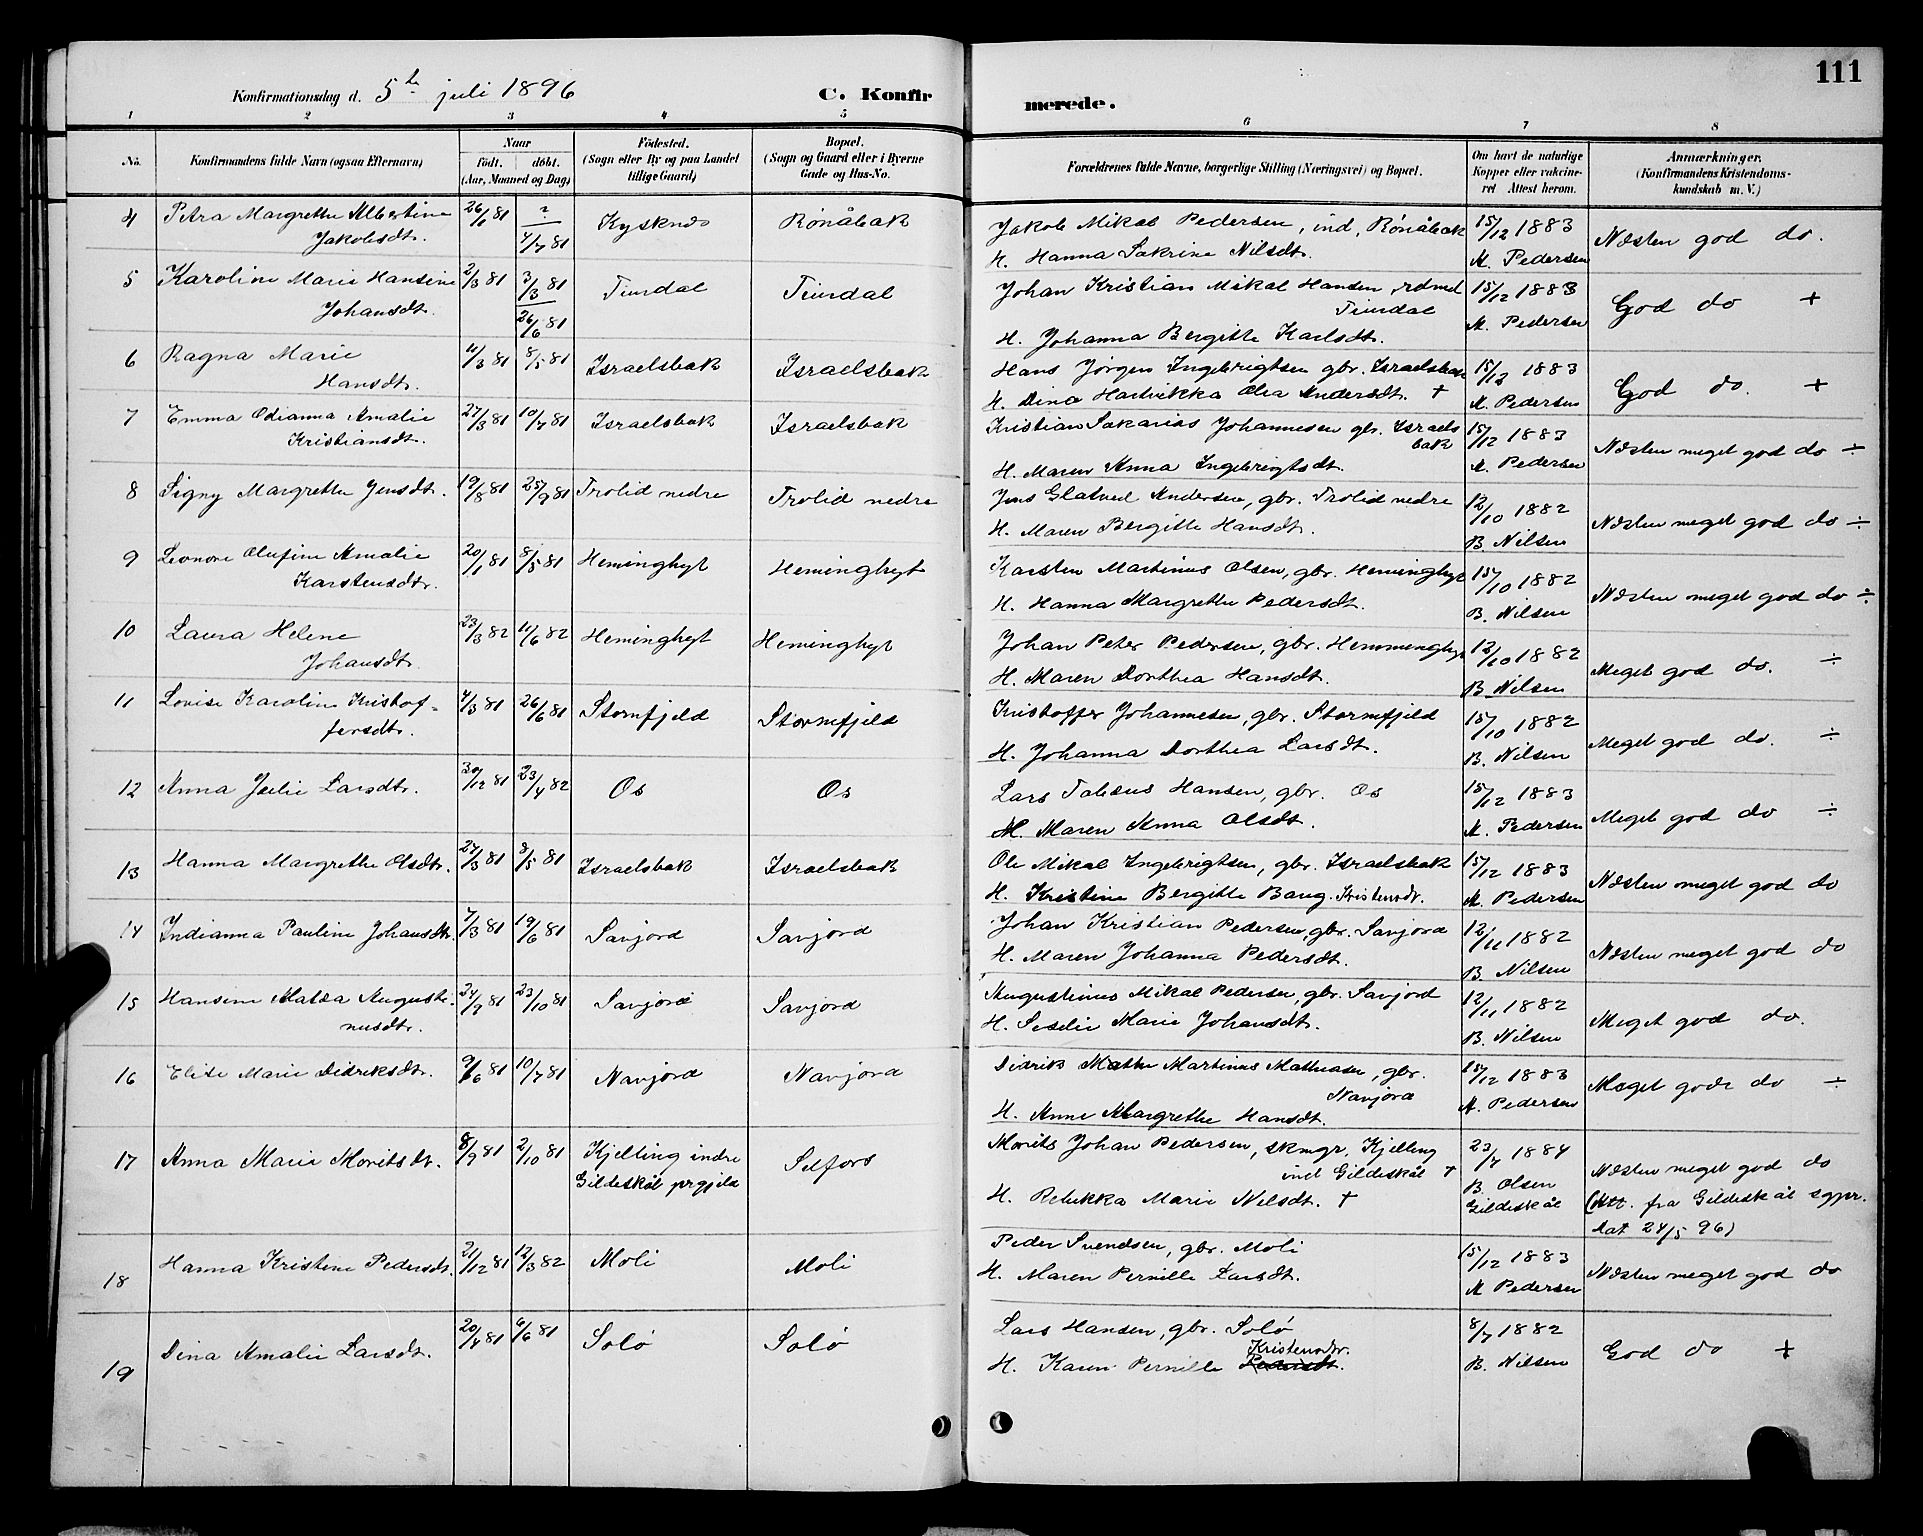 111
Konfirmationsdag d. 5te juli 1896 C. Konfirmerede.
1 2 3 4 5 6 7 8
No. Konfirmandens fulde Navn (ogsaa Efternavn) Naar født. døbt. (Aar, Maaned og Dag) Fødested. (Sogn eller By og paa Landet tillige Gaard) Bopæl. (Sogn og Gaard eller i Byerne Gade og Hus-No. Forældrenes fulde Navne, borgerlige Stilling (Næringsvei) og Bopæl. Om havt de naturlige Kopper eller vaccineret Attest herom. Anmærkninger. (Konfirmandens Kristendomskundskab m. V.)
4 Petra Margrethe Albertine 26/1 81 ? Rønåbak Jakob Mikal Pedersen, ind, Rønåbak 15/12 1883 Næsten god do.
Jakobsdt. 4/7 81 H. Hanna Sakrine Nilsdt. M. Pedersen
5 Karoline Marie Hansine 2/3 81 3/3 81 Tiurdal Tiurdal Johan Kristian Mikal Hansen, rdmd 15/12 1883 God do +
Johansdt. 26/6 81 Tiurdal M. Pedersen
H. Johanna Bergitte Karlsdt.
6 Ragna Marie 11/3 81 8/5 81 Israelsbak Israelsbak Hans Jørgen Ingebrigtsen gbr. Israelsbak 15/12 1883 God do. +
Hansdt. H. Dina Hartvikka Olea Andersdt. + M. Pedersen
7 Emma Odianna Amalie 27/3 81 10/7 81 Israelsbak Israelsbak Kristian Sakarias Johannesen gbr. Israels 15/12 1883 Næsten meget god do ÷
Kristiansdt. bak
H. Maren Anna Ingebrigtsdt. M. Pedersen
8 Signy Margrethe Jensdt. 19/8 81 25/9 81 Trolid nedre Trolid nedre Jens Glatved Andersen, gbr. Trolid nedre 12/10 1882 Næsten meget god do ÷
H. Maren Bergitte Hansdt. B. Nilsen
9 Leonore Olufine Amalie 20/1 81 8/5 81 Heminghyt Heminghyt Karsten Martinus Olsen, gbr. Heminghyt 15/10 1882 Næsten meget god do ÷
Karstensdtr. H. Hanna Margrethe Pedersdt. B. Nilsen
10 Laura Helene 23/3 82 11/6 82 Heminghyt Heminghyt Johan Peter Pedersen, gbr. Hemmenghyt 12/10 1882 Meget god do. ÷
Johansdt. H. Maren Dorthea Hansdt. B. Nilsen
11 Lovise Karoline Kristof- 4/3 81 26/6 81 Stormfjeld Stormfjeld Kristoffer Johannesen, gbr. Stormfjeld 15/10 1882 Meget god do. ÷
fersdtr. H. Johanna Dorthea Larsdt. B. Nilsen
12 Anna Julie Larsdtr. 30/12 81 23/4 82 Os Os Lars Tobæus Hansen, gbr. Os 15/12 1883 Meget god do ÷
H. Maren Anna Olsdt. M. Pedersen
13 Hanna Margrethe Olsdtr. 27/3 81 8/5 81 Israelsbak Israelsbak Ole Mikal Ingebrigtsen, gbr. Israelsbak 15/12 1883 Næsten meget god do
H. Kristine Bergitte Bang. Kristensdr. M. Pedersen
14 Indianna Pauline Johansdtr. 7/3 81 19/6 81 Savjord Savjord Johan Kristian Pedersen, gbr. Savjord 12/11 1882 Næsten meget god do
H. Maren Johanna Pedersdt. B. Nilsen
15 Hansine Matea Auguste- 24/9 81 23/10 81 Savjord Savjord Augustinus Mikal Pedersen, gbr. Savjord 12/11 1882 Meget god do.
nusdtr. H. Seselie Marie Johansdtr. B. Nilsen
16 Elise Marie Didriksdtr. 9/6 81 10/7 81 Navjord Navjord Didrik Martinus Mathiasen, gbr. 15/12 1883 Meget gode do ÷
Navjord
H. Anne Margrethe Hansdt. M. Pedersen
17 Anna Marie Moritsdr. 8/9 81 2/10 81 Kjelling indre Selfors Morits Johan Pedersen, skmgr, Kjelling 23/7 1884 Næsten meget god do
Gildeskål prgjeld ind Gildeskål + B. Olsen
H. Rebekka Marie Nilsdt. + Gildeskål (Att. fra Gildeskål sgpr.
dat 24/5 96)
18 Hanna Kristine Pedersdt. 21/12 81 12/3 82 Moli Moli Peder Svendsen, gbr. Moli 15/12 1883 Næsten meget god do
H. Maren Pernille Larsdt. M Pedersen
19 Dina Amalie Larsdt. 20/4 81 6/6 81 Solø Solø Lars Hansen, gbr. Solø 8/7 1882 God do +
Kristensdr.
H. Karen Pernille B. Nilsen